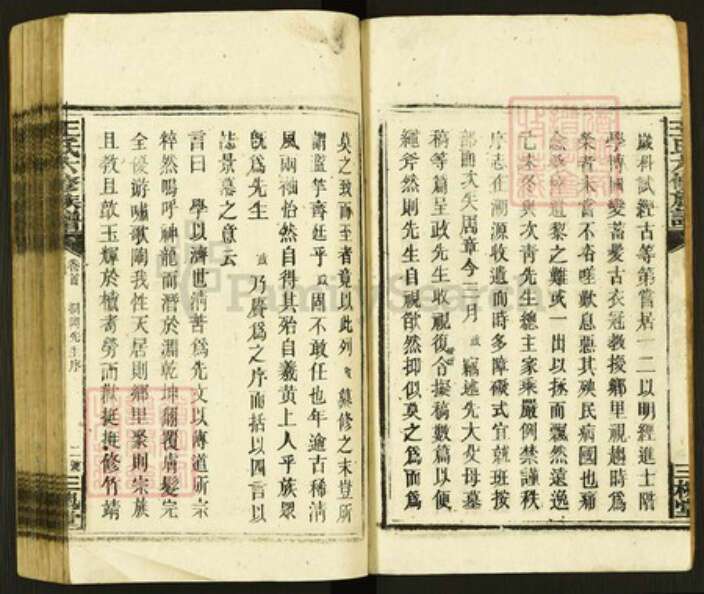 歲科試經古等第嘗居一二以明經進士階
學博國變蓄髮古衣冠教授鄉里視趨時爲
榮者未嘗不咨嗟歎息惡其殃民病國也痛
念 黎之難或一出以拯而飄然遠逸
已未冬與次靑先生總主家乘嚴例禁謹秩
序志在溯源收遺而時多障礙式宜就班按
部圖次失周章今三月 竊述先大父母墓
稿等篇呈政先生收視復令擬稿數篇以便
繩斧然則先生自視欿然抑似莫之爲而爲
莫之致而至者竟以此列 名纂修之末豈所
謂濫竽齊廷乎 或固不敢任也年逾古稀淸
風兩袖怡然自得其殆自羲黃上人乎族眾
旣爲先生 或 乃賡爲之序而括以四言以
誌景慕之意云
言曰 學以濟世淸苦爲先文以傳道所宗
粹然嗚呼神龍而潛於淵乾坤翻覆膚髮完
全優游嘯歌闢我性天居則鄉里聚則宗族
且教且啟玉輝於櫝耆勞而猷挺挺修竹靖
王氏六修族譜
卷首
先生序
二
三槐堂
王氏六修族譜
三槐堂
FamilySearch